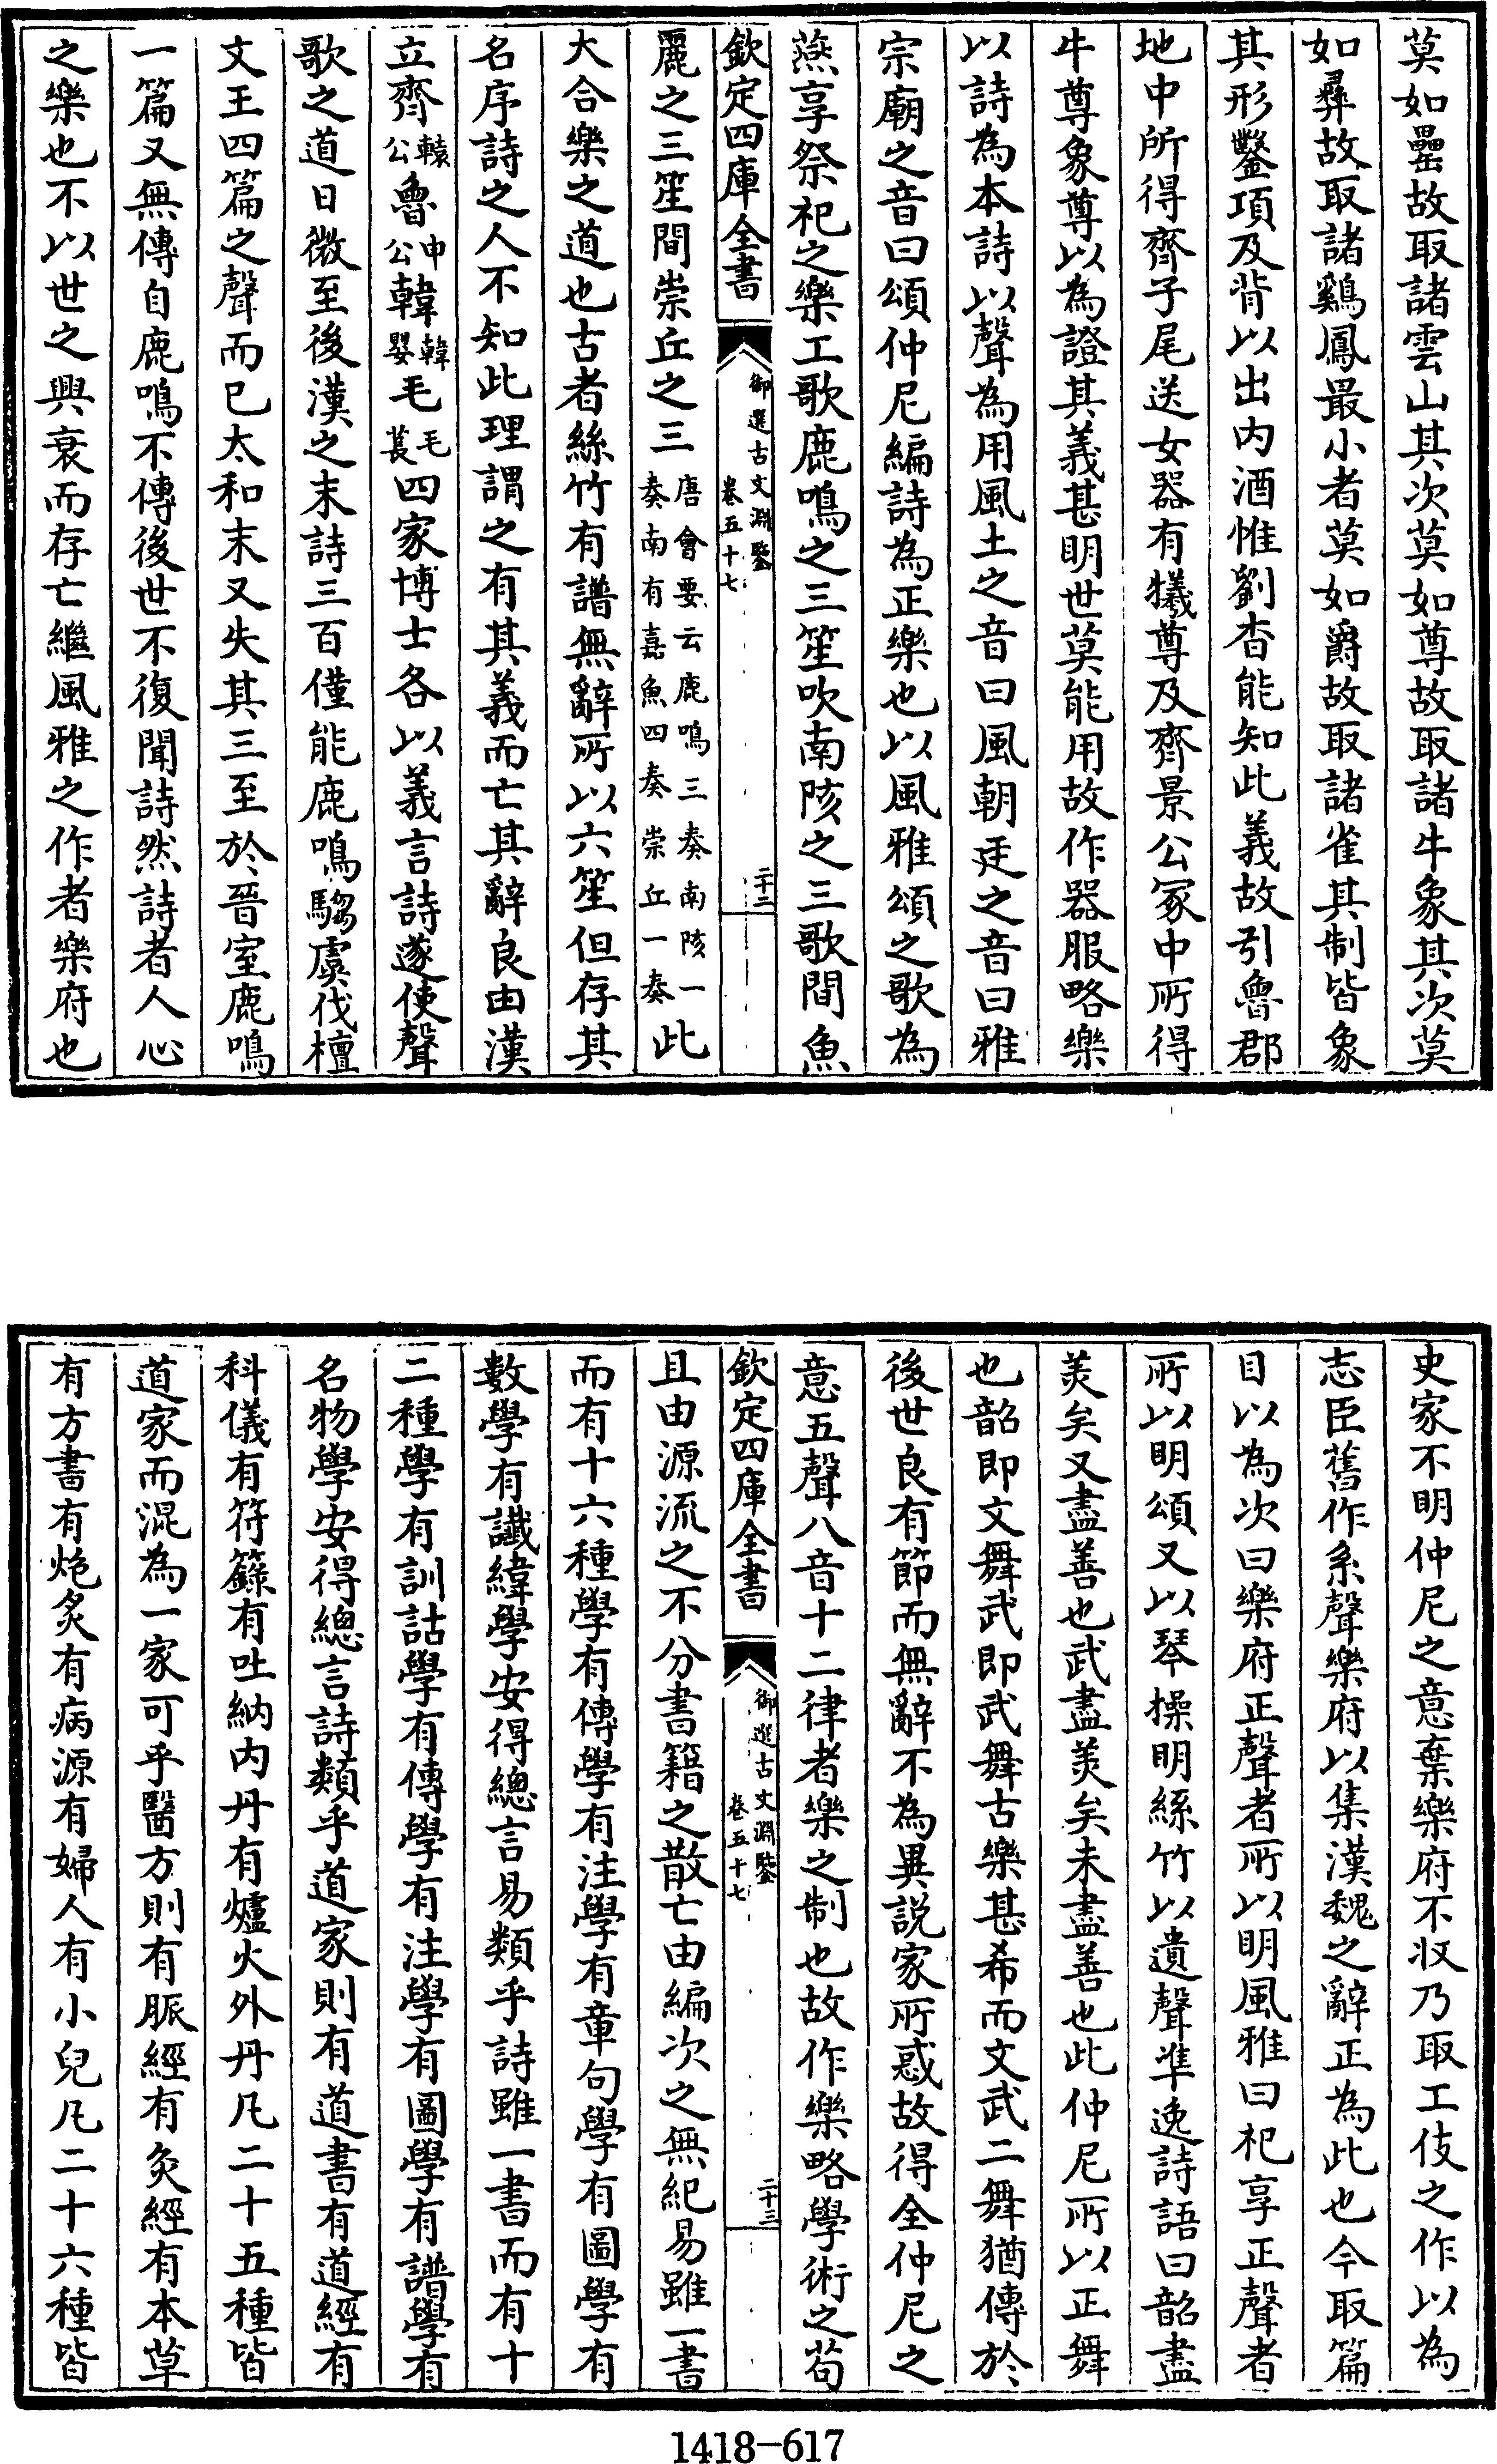 莫如罍故取諸雲山其次莫如尊故取諸牛象其次莫
如彛故取諸鷄鳳最小者莫如爵故取諸雀其制皆象
其形鑿項及背以出内酒惟劉杳能知此義故引魯郡
地中所得齊子尾送女器有犧尊及齊景公冢中所得
牛尊象尊以為證其義甚明世莫能用故作器服略樂
以詩為本詩以聲為用風土之音曰風朝廷之音曰雅
宗廟之音曰頌仲尼編詩為正樂也以風雅頌之歌為
燕享祭祀之樂工歌鹿鳴之三笙吹南陔之三歌間魚
欽定四庫全書
御選古文淵鑒
卷五十七
二十二
麗之三笙間崇丘之三唐會要云鹿鳴三奏南陔一奏南有嘉魚四奏崇丘一奏此
大合樂之道也古者絲竹有譜無辭所以六笙但存其
名序詩之人不知此理謂之有其義而亡其辭良由漢
立齊轅公魯申公韓韓嬰毛毛萇四家博士各以義言詩遂使聲
歌之道日微至後漢之末詩三百僅能鹿鳴騶虞伐檀
文王四篇之聲而已太和末又失其三至於晉室鹿鳴
一篇又無傳自鹿鳴不傳後世不復聞詩然詩者人心
之樂也不以世之興衰而存亡繼風雅之作者樂府也
史家不明仲尼之意棄樂府不收乃取工伎之作以為
志臣舊作系聲樂府以集漢魏之辭正為此也今取篇
目以為次曰樂府正聲者所以明風雅曰祀享正聲者
所以明頌又以琴操明絲竹以遺聲準逸詩語曰韶盡
美矣又盡善也武盡美矣未盡善也此仲尼所以正舞
也韶即文舞武即武舞古樂甚希而文武二舞猶傳於
後世良有節而無辭不為異説家所惑故得全仲尼之
意五聲八音十二律者樂之制也故作樂略學術之苟
欽定四庫全書
御選古文淵鑒
卷五十七
二十三
且由源流之不分書籍之散亡由編次之無紀易雖一書
而有十六種學有傳學有注學有章句學有圖學有
數學有讖緯學安得總言易類乎詩雖一書而有十
二種學有訓詁學有傳學有注學有圖學有譜學有
名物學安得總言詩類乎道家則有道書有道經有
科儀有符籙有吐納内丹有爐火外丹凡二十五種皆
道家而混為一家可乎醫方則有脈經有灸經有本草
有方書有炮炙有病源有婦人有小兒凡二十六種皆
1418-617